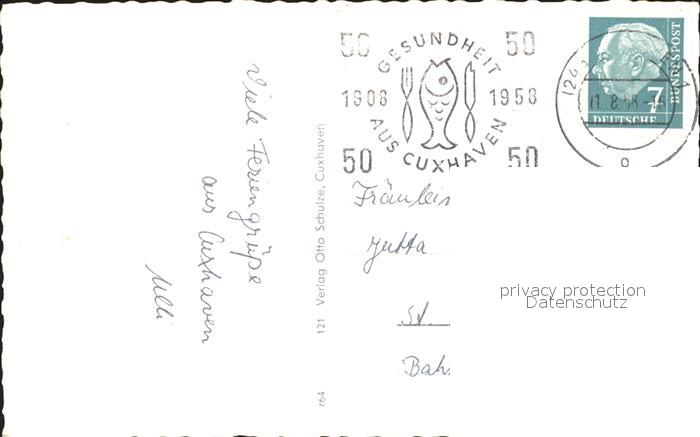 50 GESUNDHEIT 50
1908 1958
50 AUS CUXHAVEN 50
(24a)
11.8.58
7
DEUTSCHE
BUNDESPOST
Viele Feriengrüße
aus Cuxhaven
Ulli
r64 121 Verlag Otto Schulze, Cuxhaven
Fräulein
Jutta
St.
Bah.
privacy protection
Datenschutz